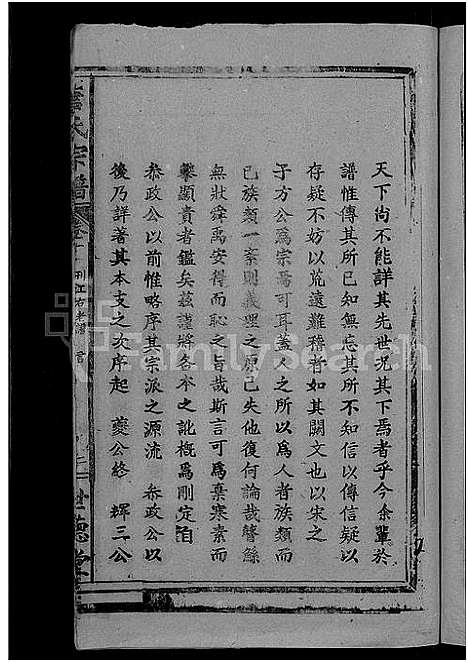 天下尚不能詳其先世况其下焉者乎今余輩於
譜惟傳其所已知無忘其所不知信以傳信疑以
存疑不妨以荒遠難稽者如其闕文也以宋之
子方公爲宗焉可耳蓋人之所以爲人者族類而
已族類一紊則義理之原已失他復何論哉瞽鯀
無狀舜禹安得而恥之旨哉斯言可爲棄寒素而
攀顯貴者鑑矣兹謹將各本之訛槪爲刪定自
叅政公以前惟略序其宗派之源流 叅政公以
後乃詳著其本支之次序起 夔公終 輝三公
氏宗譜
江右老譜
世德堂
FamilySearch